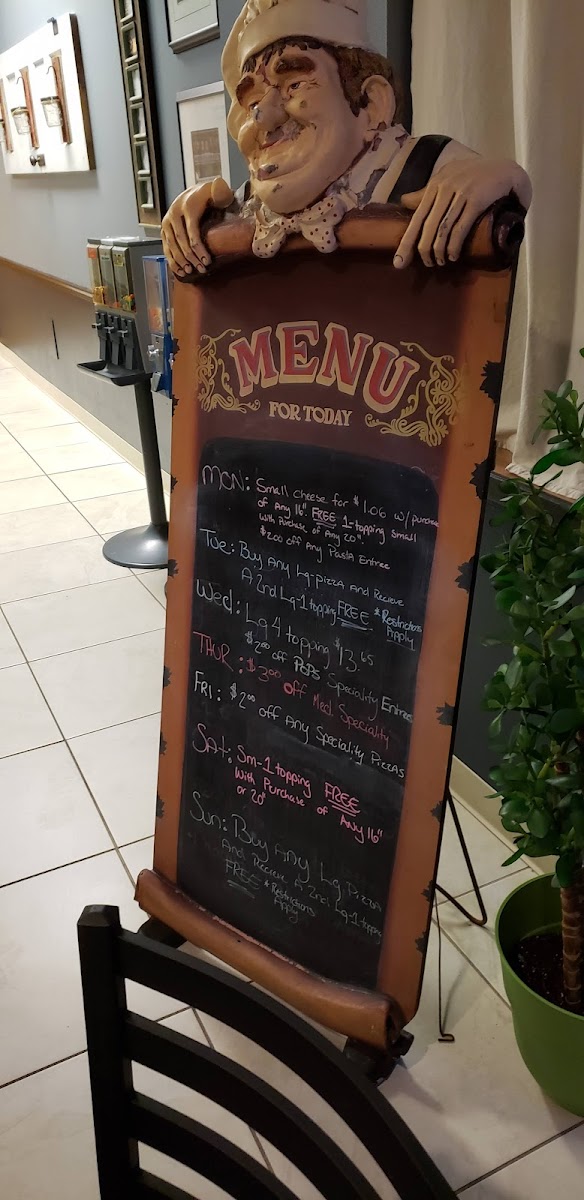 MENU
FOR TODAY
MON: Small cheese for $1.06 w/ purchase
of Any 16" FREE 1-topping small
with Purchase of Any 20".
$2.00 off Any Pasta Entree
Tue: Buy Any Lg-pizza And Recieve
A 2nd Lg-1 topping FREE *Restrictions
Apply
Wed: Lg 4 topping $13.65
$2.00 off Pop's Speciality Entree
THUR: $3.00 off Med Speciality
FRI: $2.00 off Any Speciality Pizzas
SAt: Sm-1 topping FREE
With Purchase of Any 16"
or 20"
Sun: Buy Any Lg Pizza
And Recieve A 2nd Lg-1 topping
FREE *Restrictions
Apply